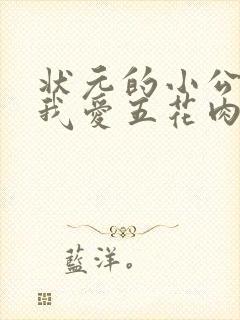 状元的小公
我爱五花肉
蓝洋。